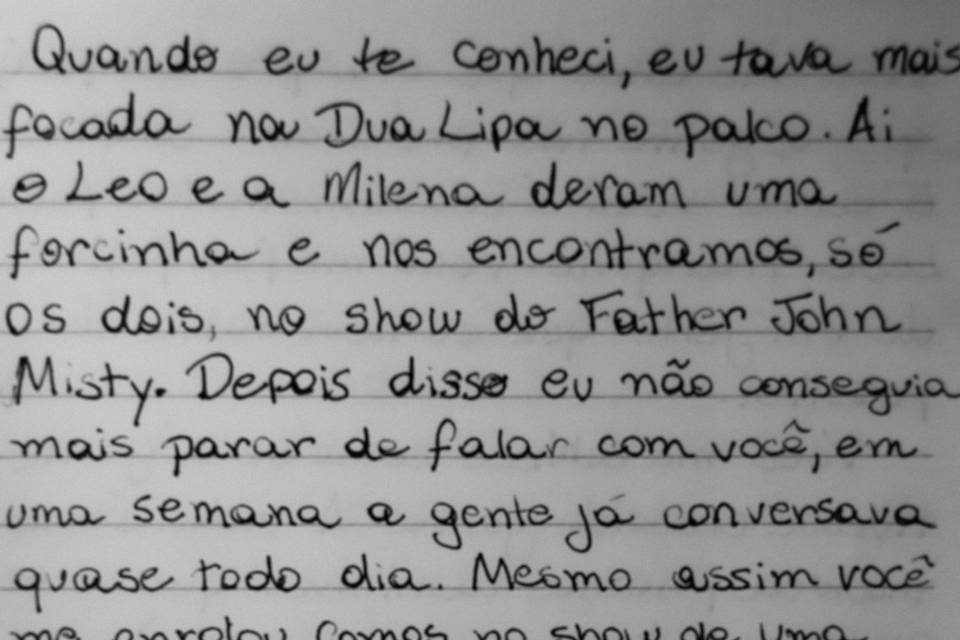 Quando eu te conheci, eu tava mais
focada na Dua Lipa no palco. Ai
o Leo e a Milena deram uma
forcinha e nos encontramos, só
os dois, no show do Father John
Misty. Depois disso eu não conseguia
mais parar de falar com você, em
uma semana a gente já conversava
quase todo dia. Mesmo assim você
me enrolou fomos no show de uma